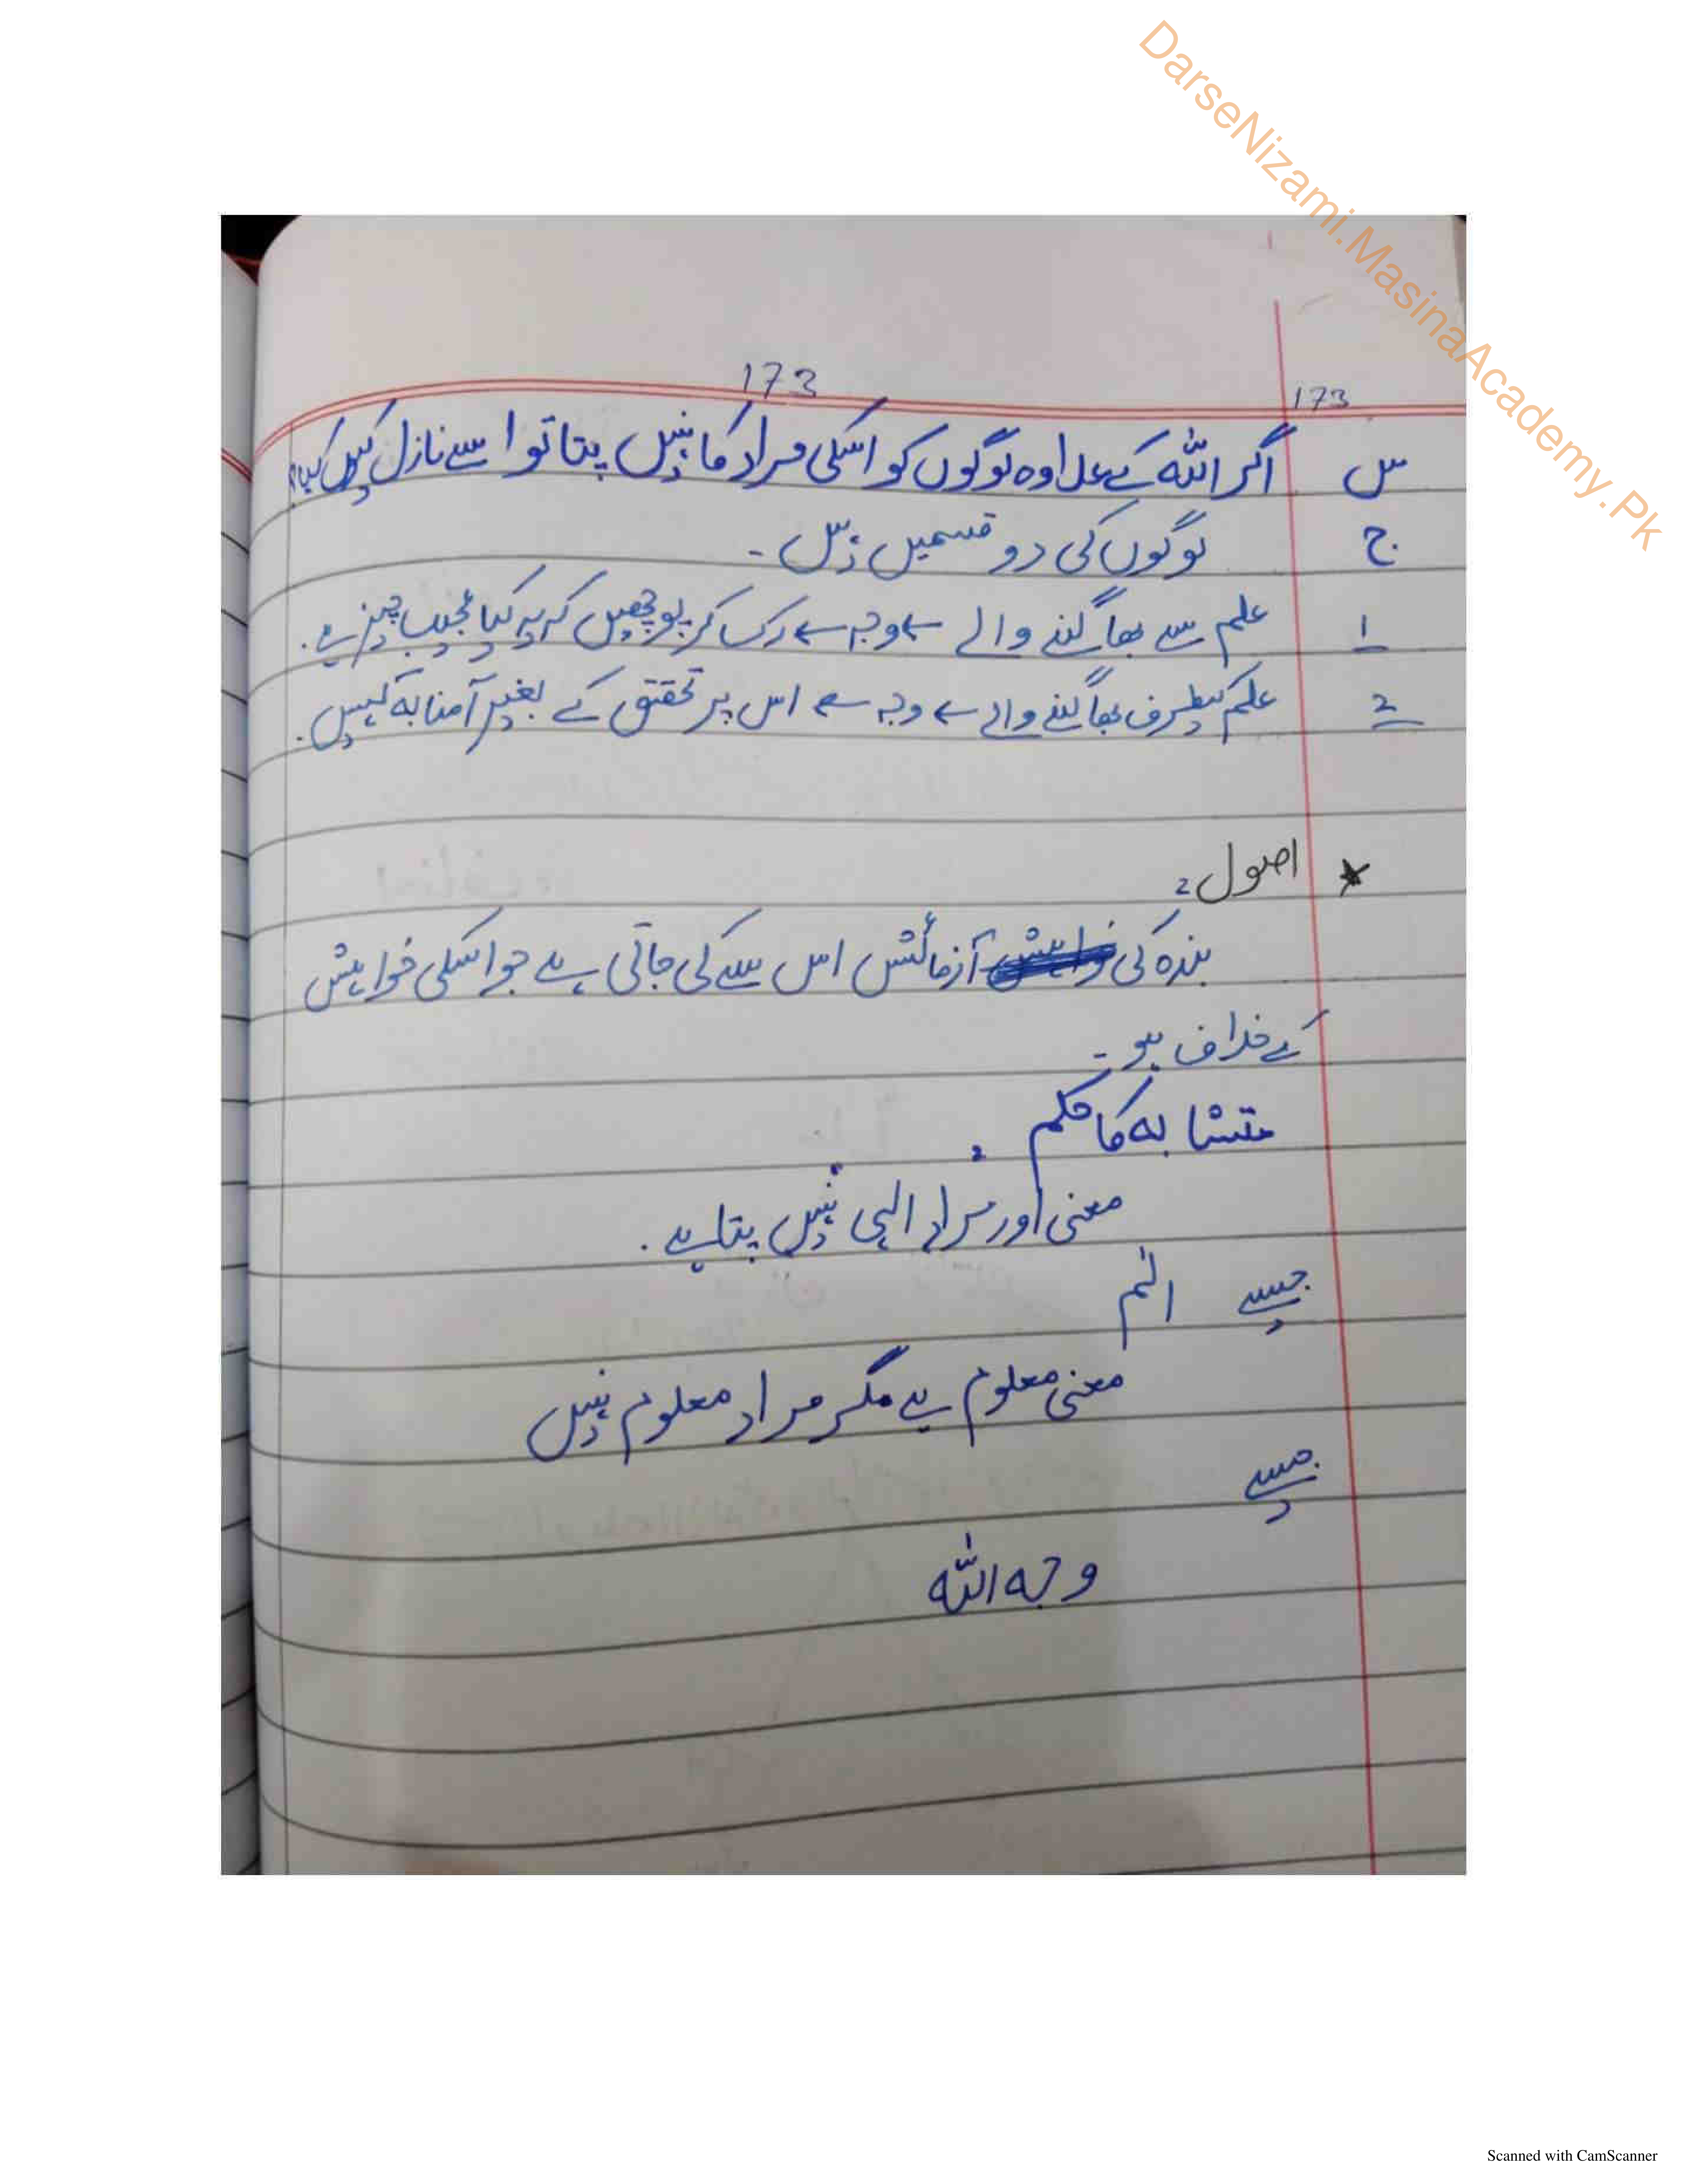 DarseNizami.MasinaAcademy.Pk
173
173
س اگر اللہ کے علاوہ لوگوں کو اسکی مراد کا نہیں پتا تو اسے نازل کیوں کیا؟
ج لوگوں کی دو قسمیں ہیں۔
1 علم سے بھاگنے والے ← وجہ ← رک کر پوچھیں کہ یہ کیا عجیب چیز ہے.
2 علم کیطرف بھاگنے والے ← وجہ ← اس پر تحقیق کے بغیر آمنا بہ کہیں.
★ اصول:
بندہ کی آزمائش اس سے کی جاتی ہے جو اسکی خواہش
کے خلاف ہو۔
متشابہ کا حکم :
معنی اور مراد الہی نہیں پتا ہے.
جیسے الٓم
معنی معلوم ہے مگر مراد معلوم نہیں
جیسے
وجہ اللہ
Scanned with CamScanner